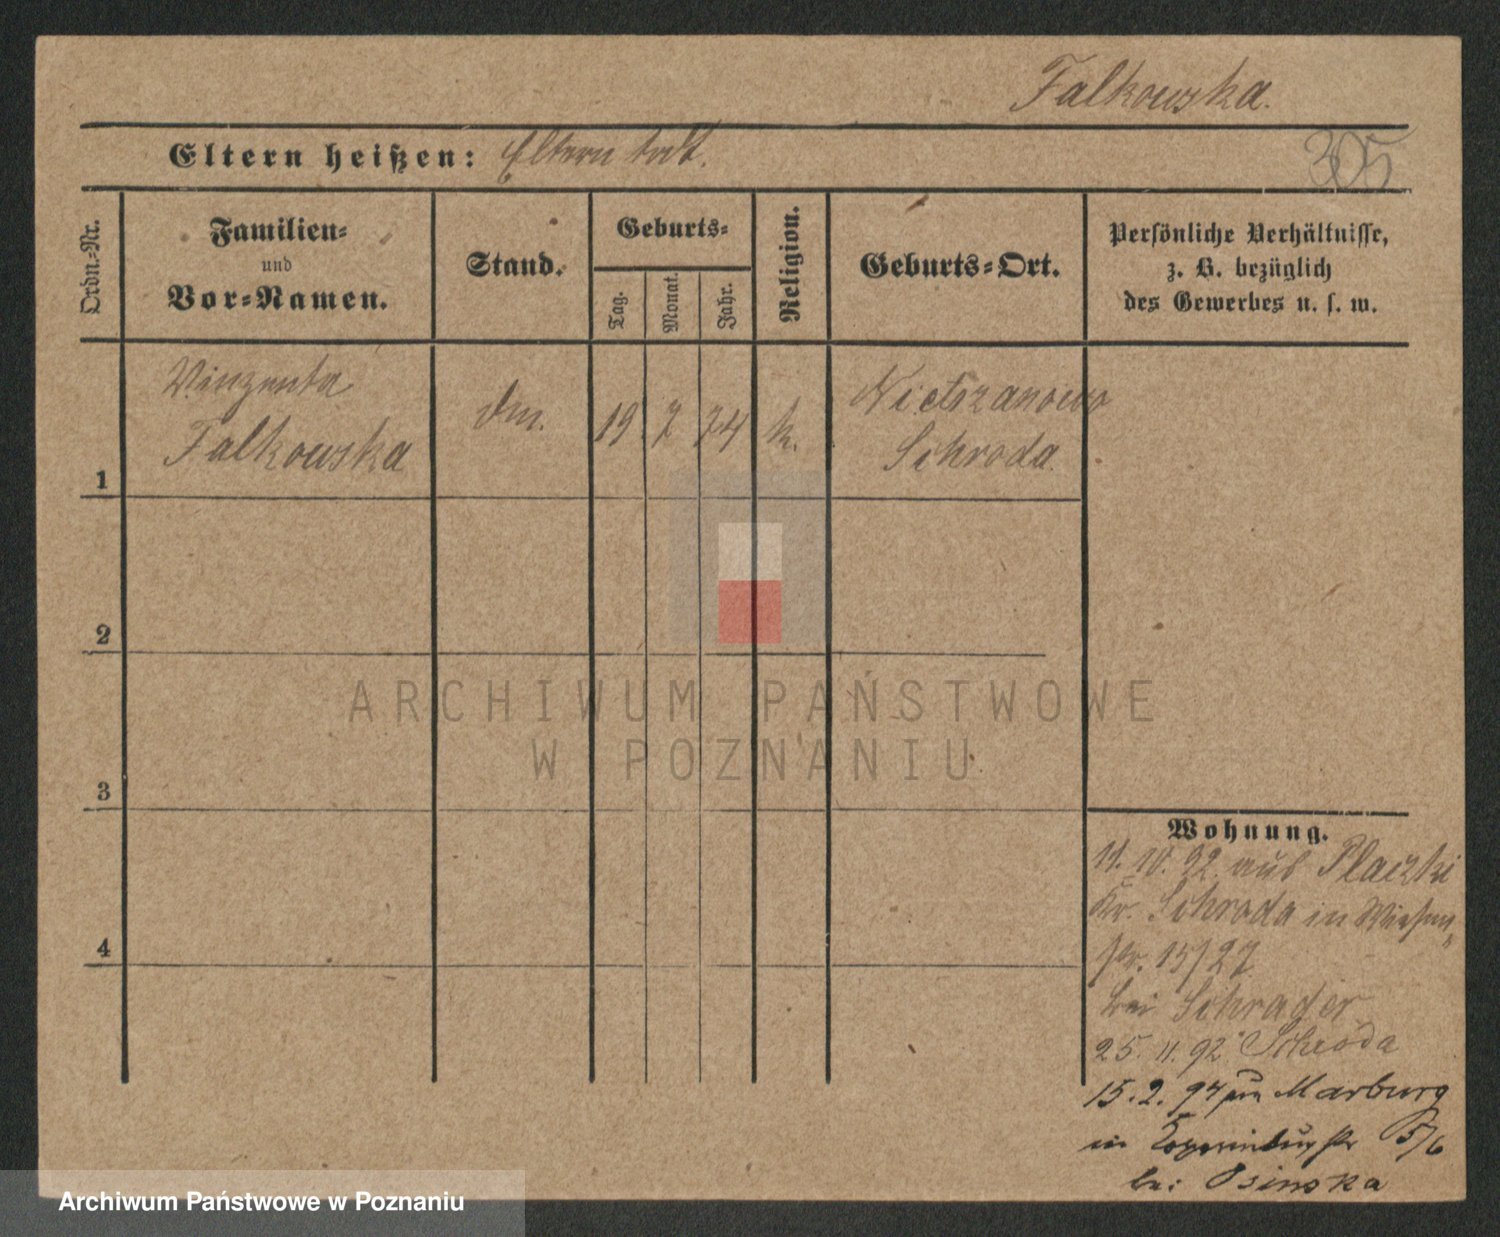 Falkowska.
Eltern heißen: Eltern todt.
305
Ordn.-Nr.
Familien-
und
Vor-Namen.
Stand.
Geburts-
Tag.
Monat.
Jahr.
Religion.
Geburts-Ort.
Persönliche Verhältnisse,
z. B. bezüglich
des Gewerbes u. s. w.
1
Vinzenta
Falkowska
19 7 74
k.
Nietrzanowo
Schroda
2
3
4
Wohnung.
11. 10. 92 aus Placzki
Kr. Schroda in Wiesen
str. 15/27
bei Schrader
25. 11. 92. Schroda
15. 2. 94 Marburg
in 5/6
bei Osinska
ARCHIWUM PAŃSTWOWE
W POZNANIU
Archiwum Państwowe w Poznaniu